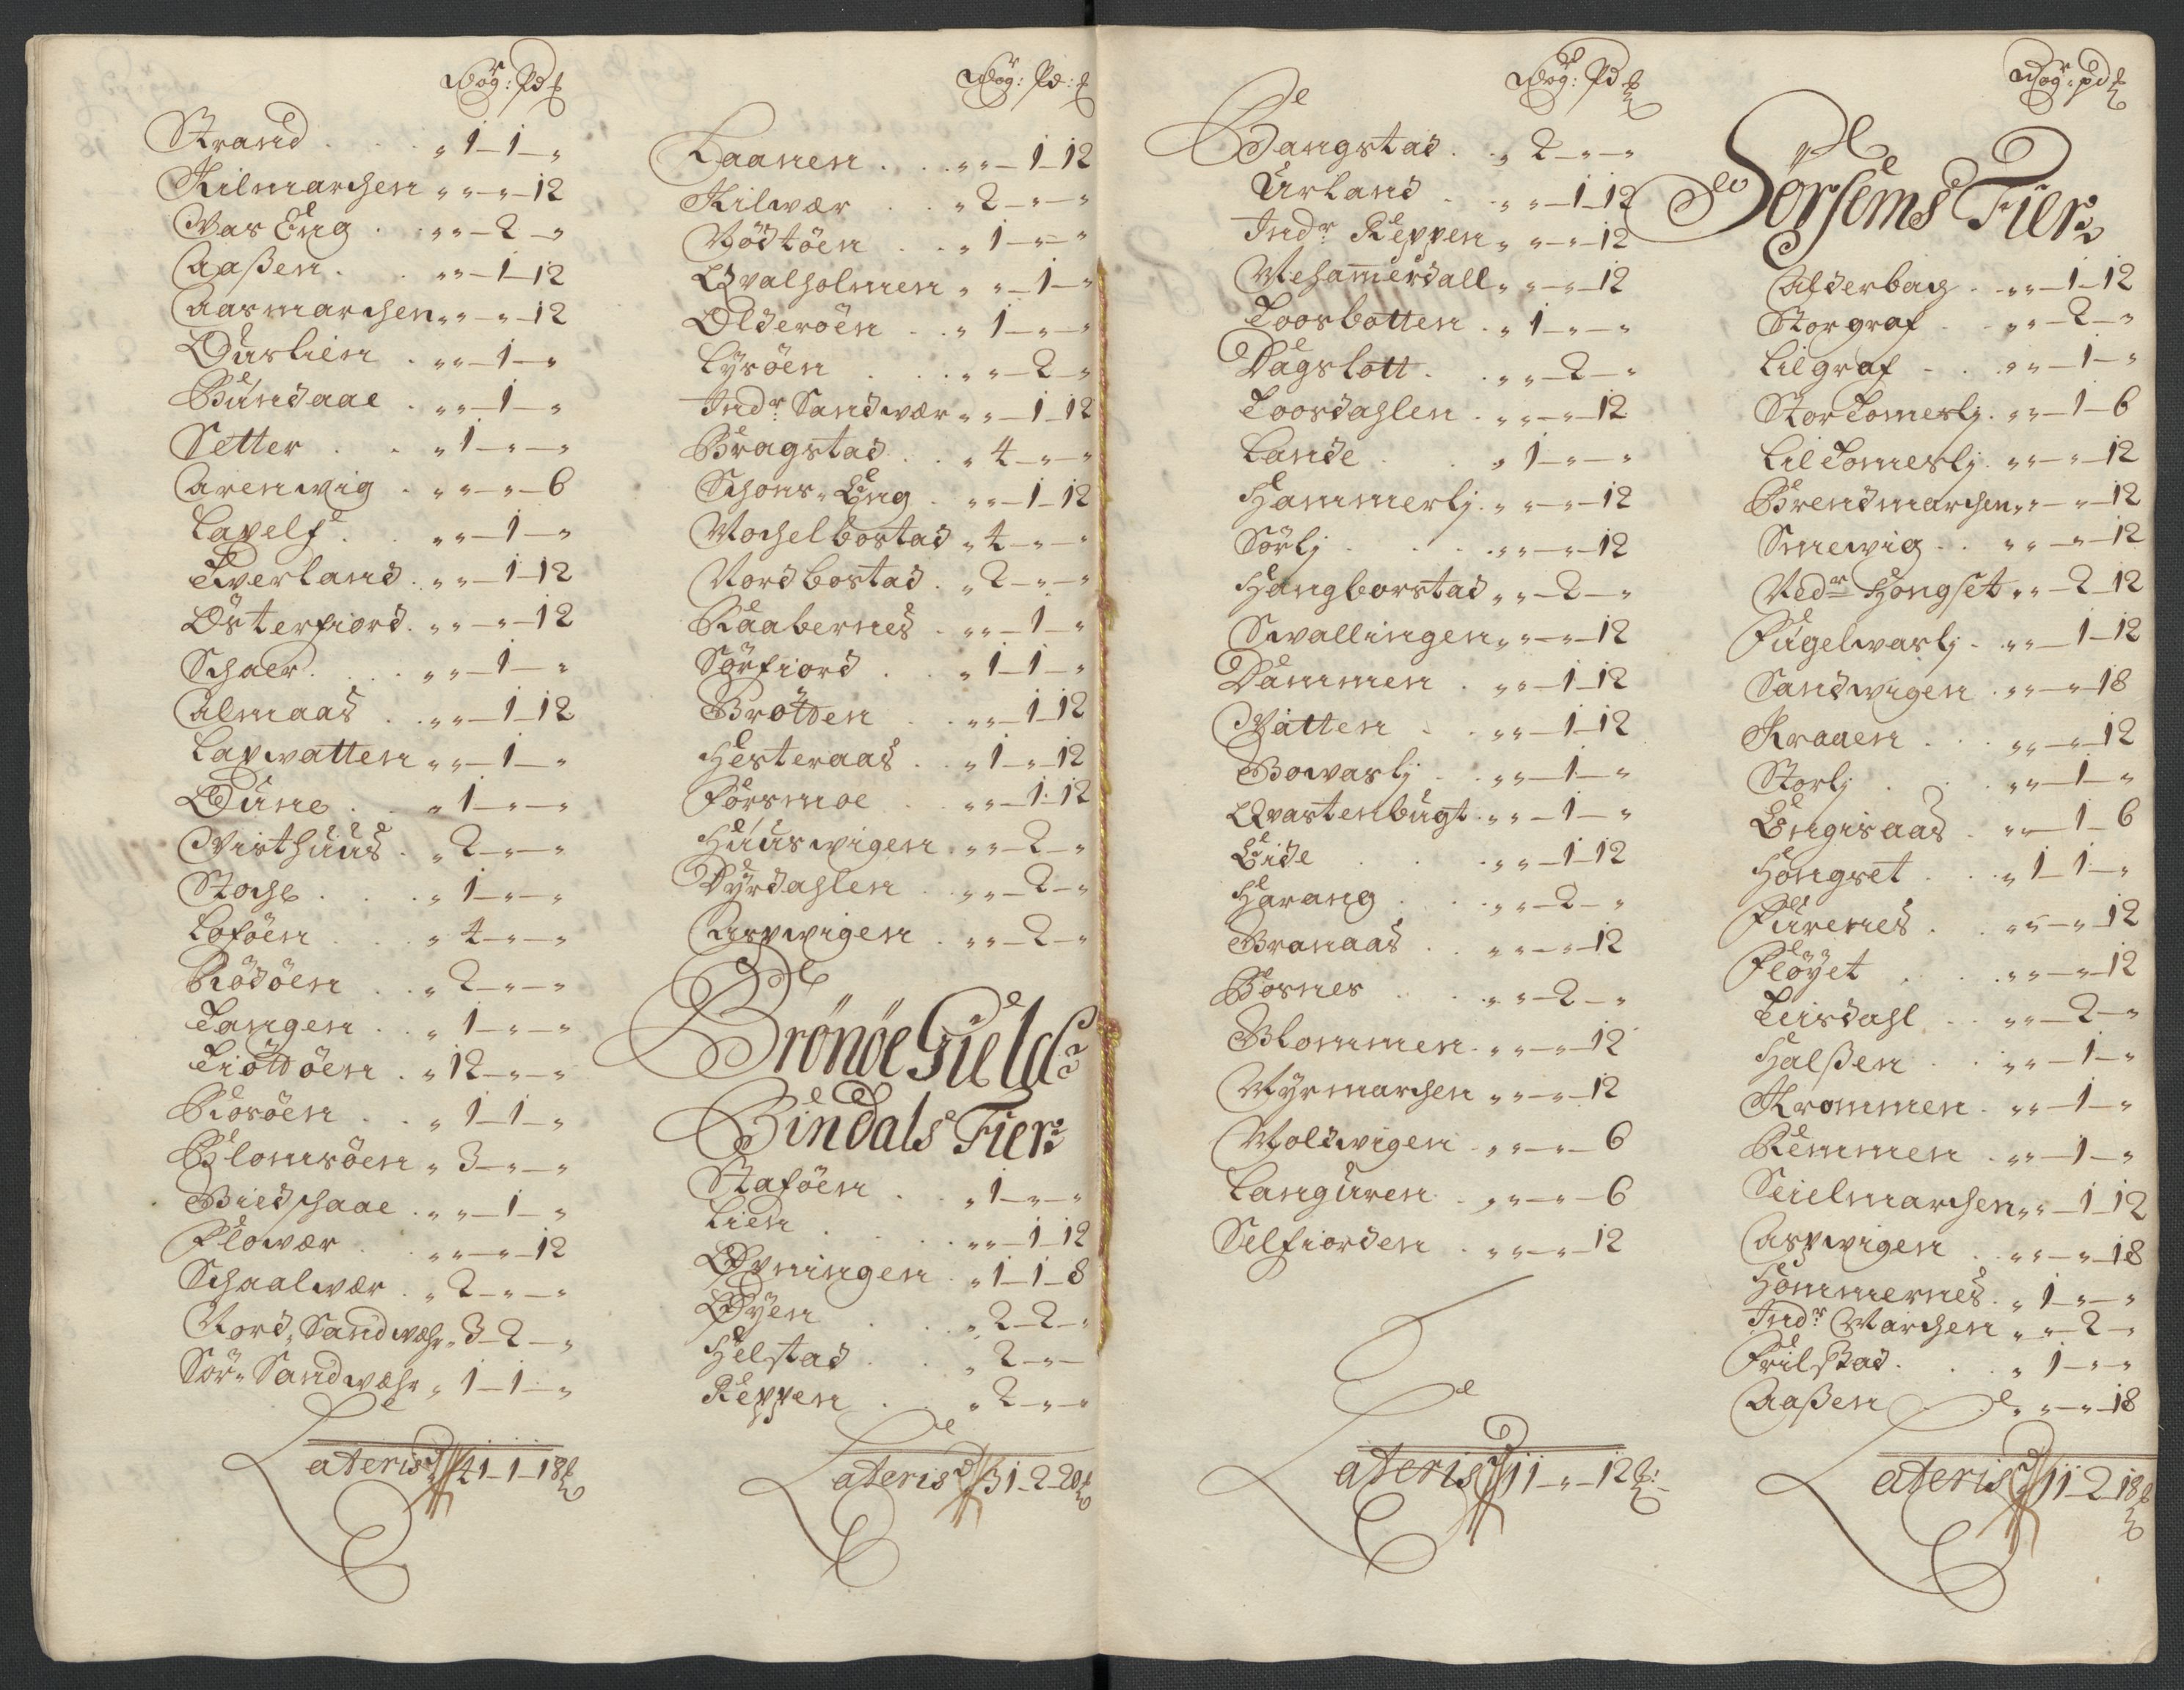 Wog: Pd:
Strand . . . „ 1–1–„
Kilmarchen „ „–„–12
Vas Eng . „ „–2–„
Aaßen . . „ „–1–12
Aasmarchen „ „–„–12
Øuslien . „ „–1–„
Bundaae . „ „–1–„
Setter . . „ 1–„–„
Arenwig . „ „–„–6
Lapelf . . „ „–1–„
Tverland . „ „–1–12
Østerfiord . „ „–„–12
Schaer . . . „ „–1–„
Almaas . . „ „–1–12
Lapwatten „ „–1–„
Øune . . „ 1–„–„
Visthuus . „ 2–„–„
Stoche . . . „ 1–„–„
Loföen . . . „ 4–„–„
Rödöen . . „ 2–„–„
Tangen . . „ 1–„–„
Tiöttöen . „ 12–„–„
Rosöen . . „ 1–1–„
Blomsöen „ 3–„–„
Biedschaae . „ „–1–„
Flowær . . „ „–„–12
Schaalwær . „ 2–„–„
Nord„ Sandwæhr „ 3–2–„
Sör„ Sandwæhr „ 1–1–„
Lateris 41–1–18
Wog: Pd:
Laanen . . . „ „–1–12
Kilwær . . „ 2–„–„
Vödtöen . . „ 1–„–„
Qvalholmen „ „–1–„
Olderöen . . „ 1–„–„
Lysöen . . . „ „–2–„
Indr Sandwær „ „–1–12
Bragstad . . „ 4–„–„
Schons„ Eng . „ „–1–12
Mochelbostad „ 4–„–„
Nordbostad . „ 2–„–„
Raabernes . „ „–1–„
Sörfiord . . „ 1–1–„
Brötten . . „ „–1–12
Hesteraas . . „ 1–„–12
Forsmoe . . „ „–1–12
Huuswigen . „ „–2–„
Dyrdahlen . „ „–2–„
Aspwigen . „ „–2–„
Brönöe Gield
Bindals Fier:
Staföen . . „ 1–„–„
Lien . . . . „ „–1–12
Øpningen . „ 1–1–8
Øyen . . „ 2–2–„
Helstad . . „ 2–„–
Reppen . . „ 2–„–„
Lateris 31–2–20
Wog: Pd
Bangstad . „ 2–„–„
Urland . . „ „–1–12
Indr Reppen „ „–„–12
Mehamerdall „ „–„–12
Toosbotten . „ 1–„–„
Dagslott . . „ „–2–„
Toosdahlen . „ „–„–12
Lande . . . „ 1–„–„
Hammerlj . „ „–„–12
Sörlj . . . . „ „–„–12
Hangborstad „ „–2–„
Svallingen „ „–„–12
Dammen . „ „–1–12
Vatten . . „ „–1–12
Bowaslj . . „ „–1–„
Qvastenbugt . „ „–1–„
Eide . . . „ „–1–12
Harang . . . „ „–2–„
Branaas . „ „–„–12
Bosnes . . . „ „–2–„
Blommen . „ „–„–12
Myrmarchen „ „–„–12
Moldwigen . „ „–„–6
Languren . „ „–„–6
Selfiorden . „ „–„–12
Lateris 11–„–12
Wog: pd
Sörsems Fier:
Alderbach . „ „–1–12
Storgraf . „ „–2–„
Lilgraf . . „ „–1–„
StorTomeslj . „ „–1–6
LilTomeslj . „ „–„–12
Brendmarchen „ „–„–12
Smewig . . „ „–„–12
Nedr Hongset „ „–2–12
Fugelwaslj . „ „–1–12
Sandwigen . „ „–„–18
Kraaen . . . „ „–„–12
Storlj . . . „ „–1–„
Engisaas . „ „–1–6
Hongset . . „ 1–1–„
Furenes . . „ „–„–12
Fløyet . . . „ „–„–12
Teisdahl . . „ „–2–„
Halßen . . „ „–1–„
Krommen . „ „–1–„
Remmen . „ „–1–„
Seielmarchen „ „–1–12
Aspwigen . „ „–„–18
Hommernes . „ 1–„–„
Indr Marchen „ „–2–„
Frilstad . . . „ 1–„–„
Aaßen . . „ „–„–18
Lateris 11–2–18